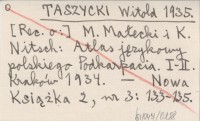 TASZYCKI Witold 1935.
[Rec. o:] M. Małecki i K.
Nitsch: Atlas językowy
polskiego Podkarpacia. I-II
Kraków 1934. — Nowa
Książka 2, nr. 3: 133-135.